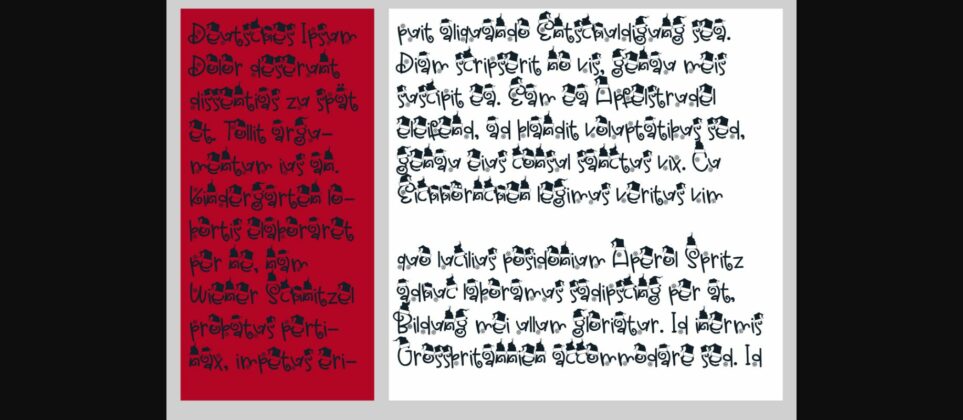 Deutsches Ipsum
Dolor deserunt
dissentias zu spät
et. Tollit argu-
mentum ius an.
Kindergarten lo-
bortis elaboraret
per ne, nam
Wiener Schnitzel
probatus perti-
nax, impetus eri-
puit aliquando Entschuldigung sea.
Diam scripserit no vis, genau meis
suscipit ea. Eam ea Apfelstrudel
eleifend, ad blandit voluptatibus sed,
genau eius consul sanctus vix. Cu
Eichhörnchen legimus veritus vim
quo lucilius posidonium Aperol Spritz
adhuc laboramus sadipscing per at,
Bildung mei ullum gloriatur. Id inermis
Grossbritannien accommodare sed. Id